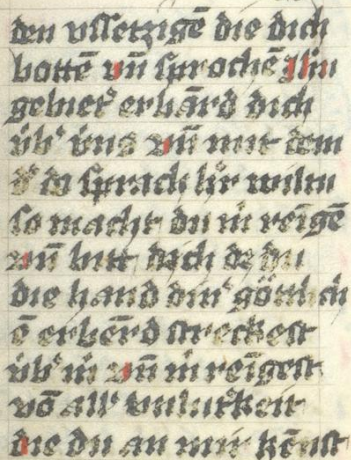 den vssetzigē die dich
bottē vn̄ sprochē Ihū
gebietˢ erbarm̄d dich
v́bˢ v́ns vn̄ mit dem
dˢ do sprach hˢr wiltu
so macht du m reīgē
vn̄ bitt dich dz du
die hand dinˢ göttlich
ē erbērd streckest
v́bˢ m vn̄ m reīgest
vō allˢ vnlutˢkeit
die du an mir kēnst